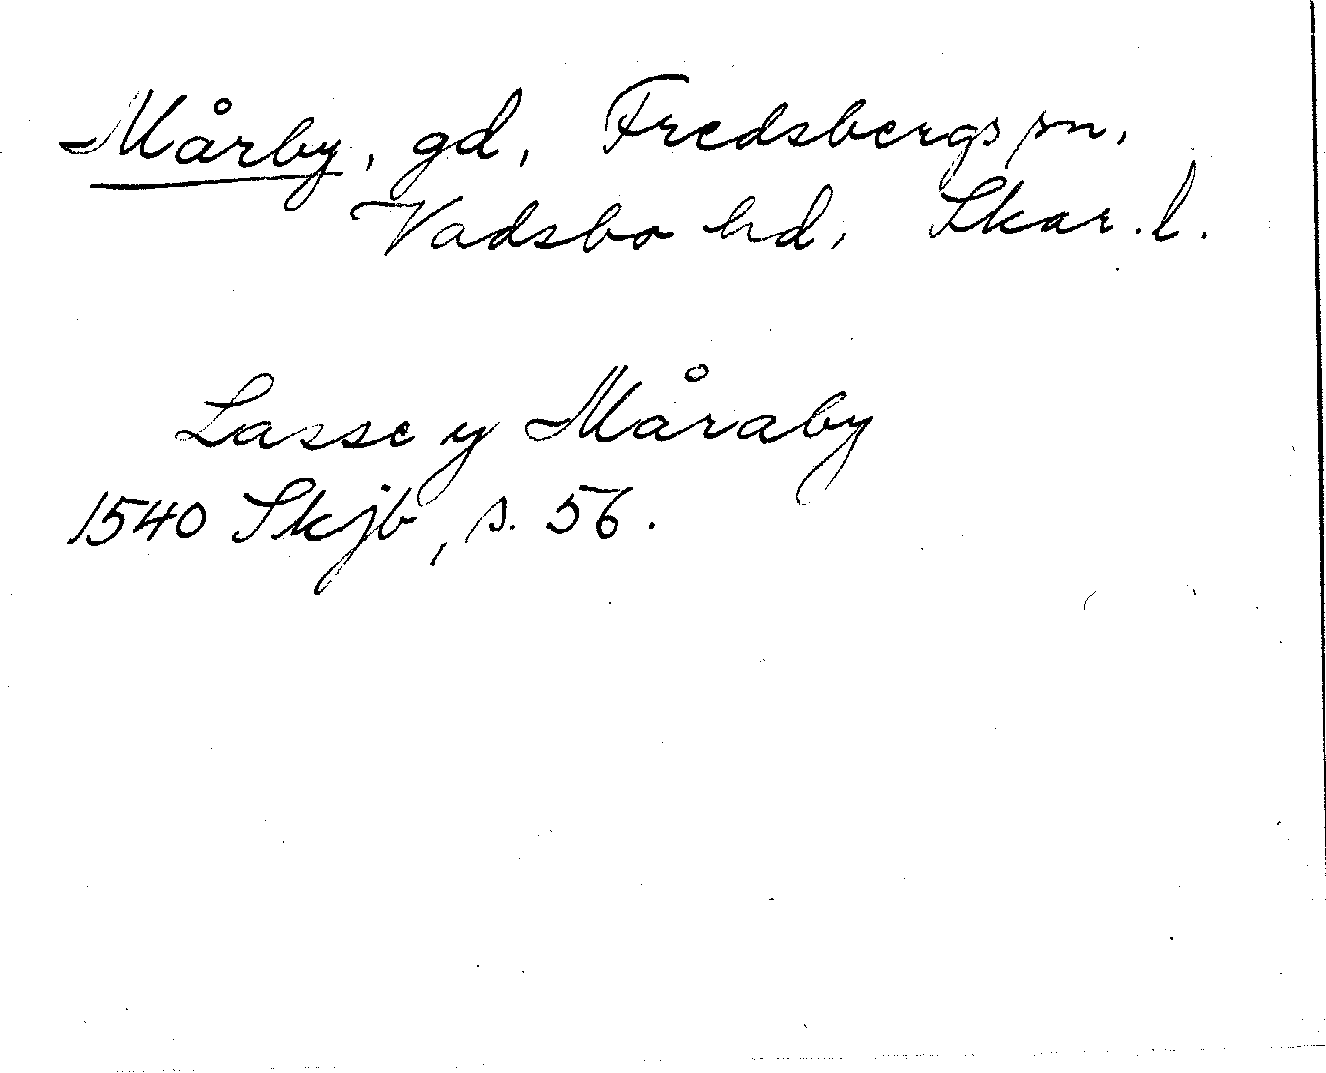 Mårby, gd, Fredsbergs sn,
Vadsbo hd, Skar. l.
Lasse y Måraby
1540 Skjb, s. 56.